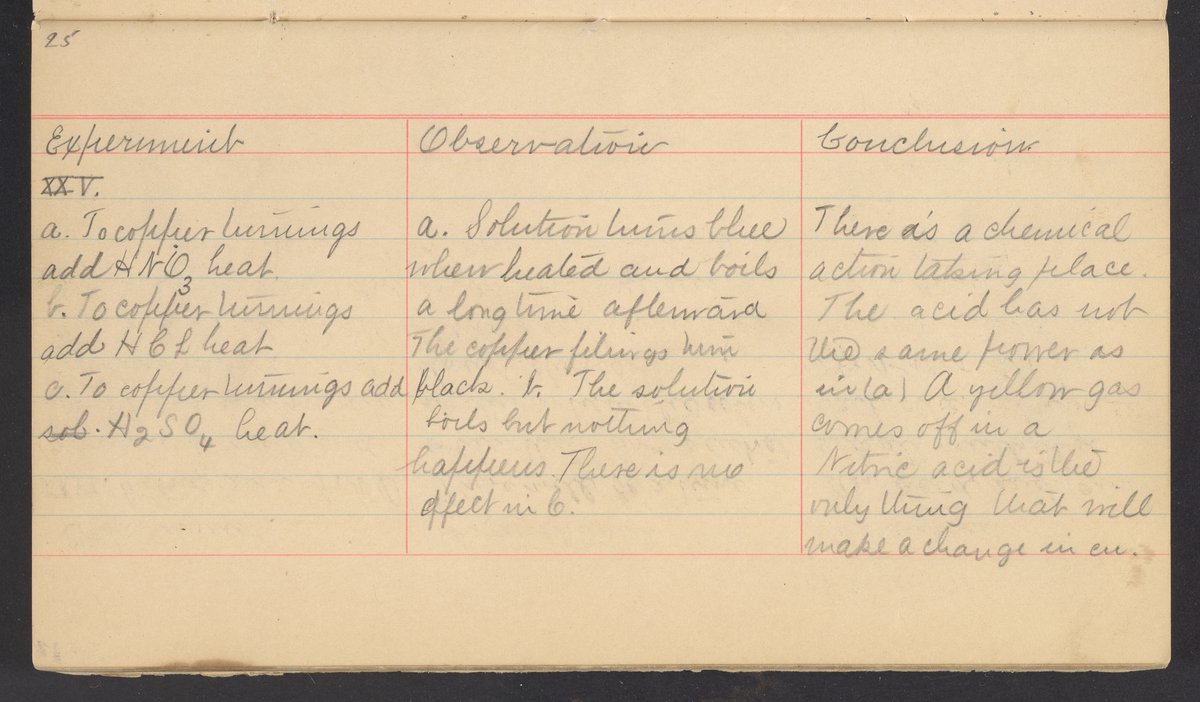 25
Experiment
XXV.
a. To copper turnings
add HNO3 heat.
b. To copper turnings
add HCl heat
c. To copper turnings add
sol. H2SO4 heat.
Observation
a. Solution turns blue
when heated and boils
a long time afterward
The copper filings turn
black. b. The solution
boils but nothing
happens. There is no
effect in C.
Conclusion
There is a chemical
action taking place.
The acid has not
the same power as
in (a) A yellow gas
comes off in a
Nitric acid is the
only thing that will
make a change in cu.